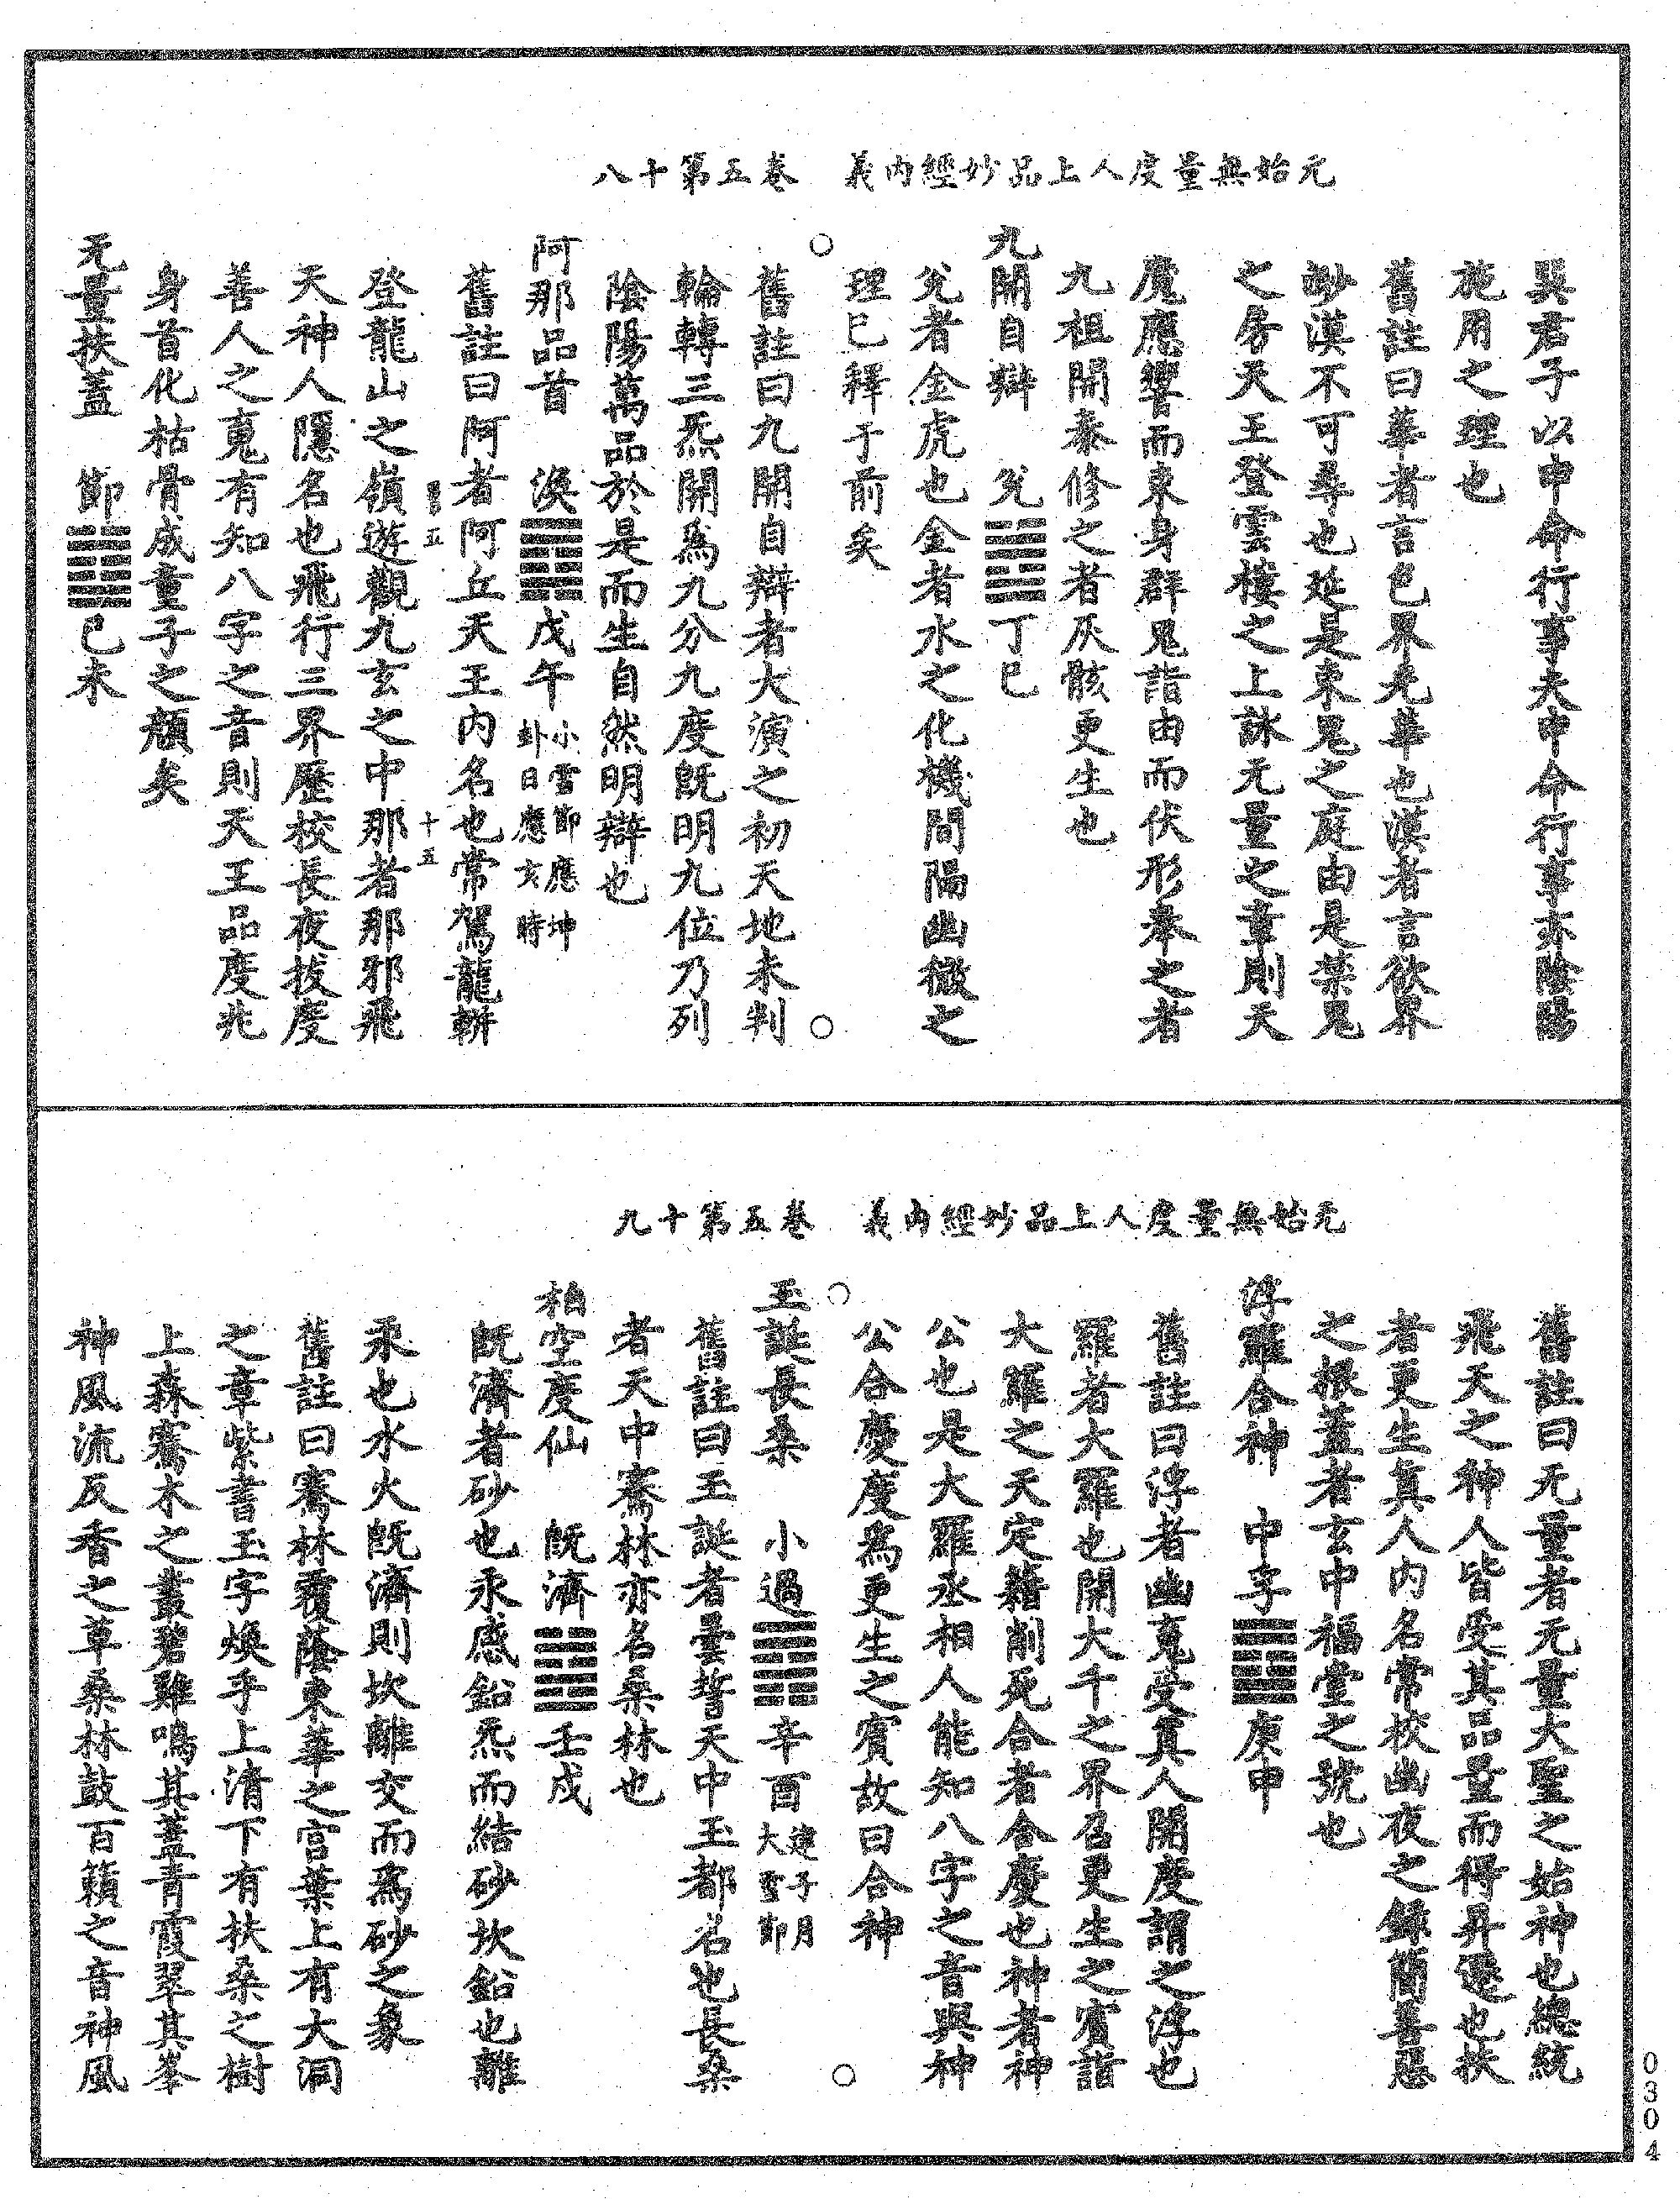 元始無量度人上品妙經內義　卷五第十八
巽君子以申命行事夫申命行事亦陰陽
施用之理也
舊註曰華者言色界无華也漠者言欲界
渺漠不可尋也延是束鬼之庭由是葉鬼
之房天王登雲樓之上詠无量之章則天
魔應響而束身群鬼詣由而伏形奉之者
九祖開泰修之者灰骸更生也
九開自辯　兌䷹丁巳
兌者金虎也金者水之化機間陽幽微之
理已釋于前矣
舊註曰九開自辯者大演之初天地未判
輪轉三炁開為九分九度既明九位乃列
陰陽萬品於是而生自然明辯也
阿那品首　渙䷺戊午小雪節應坤卦日應亥時
舊註曰阿者阿丘天王內名也常駕龍輧
五　十五
登龍山之嶺遊觀九玄之中那者那邪飛
天神人隱名也飛行三界歷校長夜拔度
善人之䰟有知八字之音則天王品度兆
身首化枯骨成童子之顏矣
无量扶蓋　節䷻己未
元始無量度人上品妙經內義　卷五第十九
舊註曰无量者无量大聖之始神也總統
飛天之神人皆受其品量而得昇遷也扶
者更生真人內名常校幽夜之錄簡善惡
之根蓋者玄中福堂之號也
浮羅合神　中孚䷼庚申
舊註曰浮者幽䰟受真人開度謂之浮也
羅者大羅也開大千之界名更生之賓詣
大羅之天定籍削死合者合慶也神者神
公也是大羅丞相人能知八字之音與神
公合慶度為更生之賓故曰合神
玉誕長桑　小過䷽辛酉建子月大雪節
舊註曰玉誕者曇誓天中玉都名也長桑
者天中騫林亦名桑林也
柏空度仙　既濟䷾壬戌
既濟者砂也汞感鉛炁而結砂坎鉛也離
汞也水火既濟則坎離交而為砂之象
舊註曰騫林覆蔭東華之宮葉上有大洞
之章紫書玉字煥乎上清下有扶桑之樹
上森騫木之叢碧雞鳴其蓋青霞翠其峯
神風流反香之草桑林鼓百籟之音神風
0304